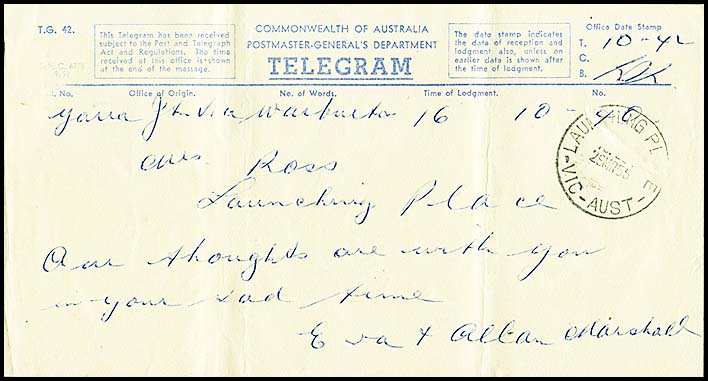 T.G. 42.
This Telegram has been received subject to the Post and Telegraph Act and Regulations. The time received at this office is shown at the end of the message.
COMMONWEALTH OF AUSTRALIA
POSTMASTER-GENERAL'S DEPARTMENT
TELEGRAM
The date stamp indicates the date of reception and lodgment also, unless an earlier date is shown after the time of lodgment.
Office Date Stamp
T. 10-42
C.
B.
No. Office of Origin. No. of Words. Time of Lodgment. No.
Yarra Jt. Via Warburton 16 10-40
Mrs Ross
Launching Place
LAUNCHING PL E
VIC-AUST
Our thoughts are with you
in your sad time
Eva + Allan Marshall